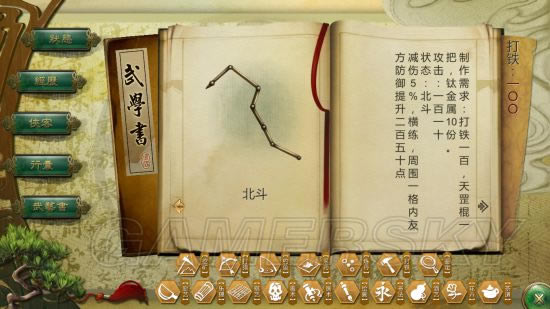 狀態
經歷
俠客
行囊
武學書
武學書
北斗
打铁：一〇〇
制作需求：打铁一百，天罡棍一
把，钛金属10份。
攻击：一百一十
状态：北斗
减伤5%，横练，周围一格内友
方防御提升二百五十点
GAMERSKY